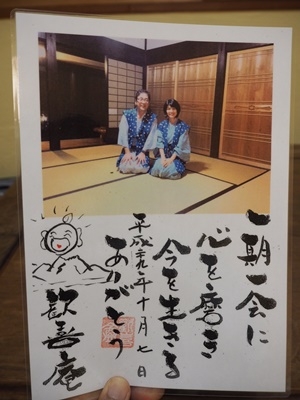 一期一会に
心を磨き
今を生きる
ありがとう
平成二九年十月七日
歓喜庵